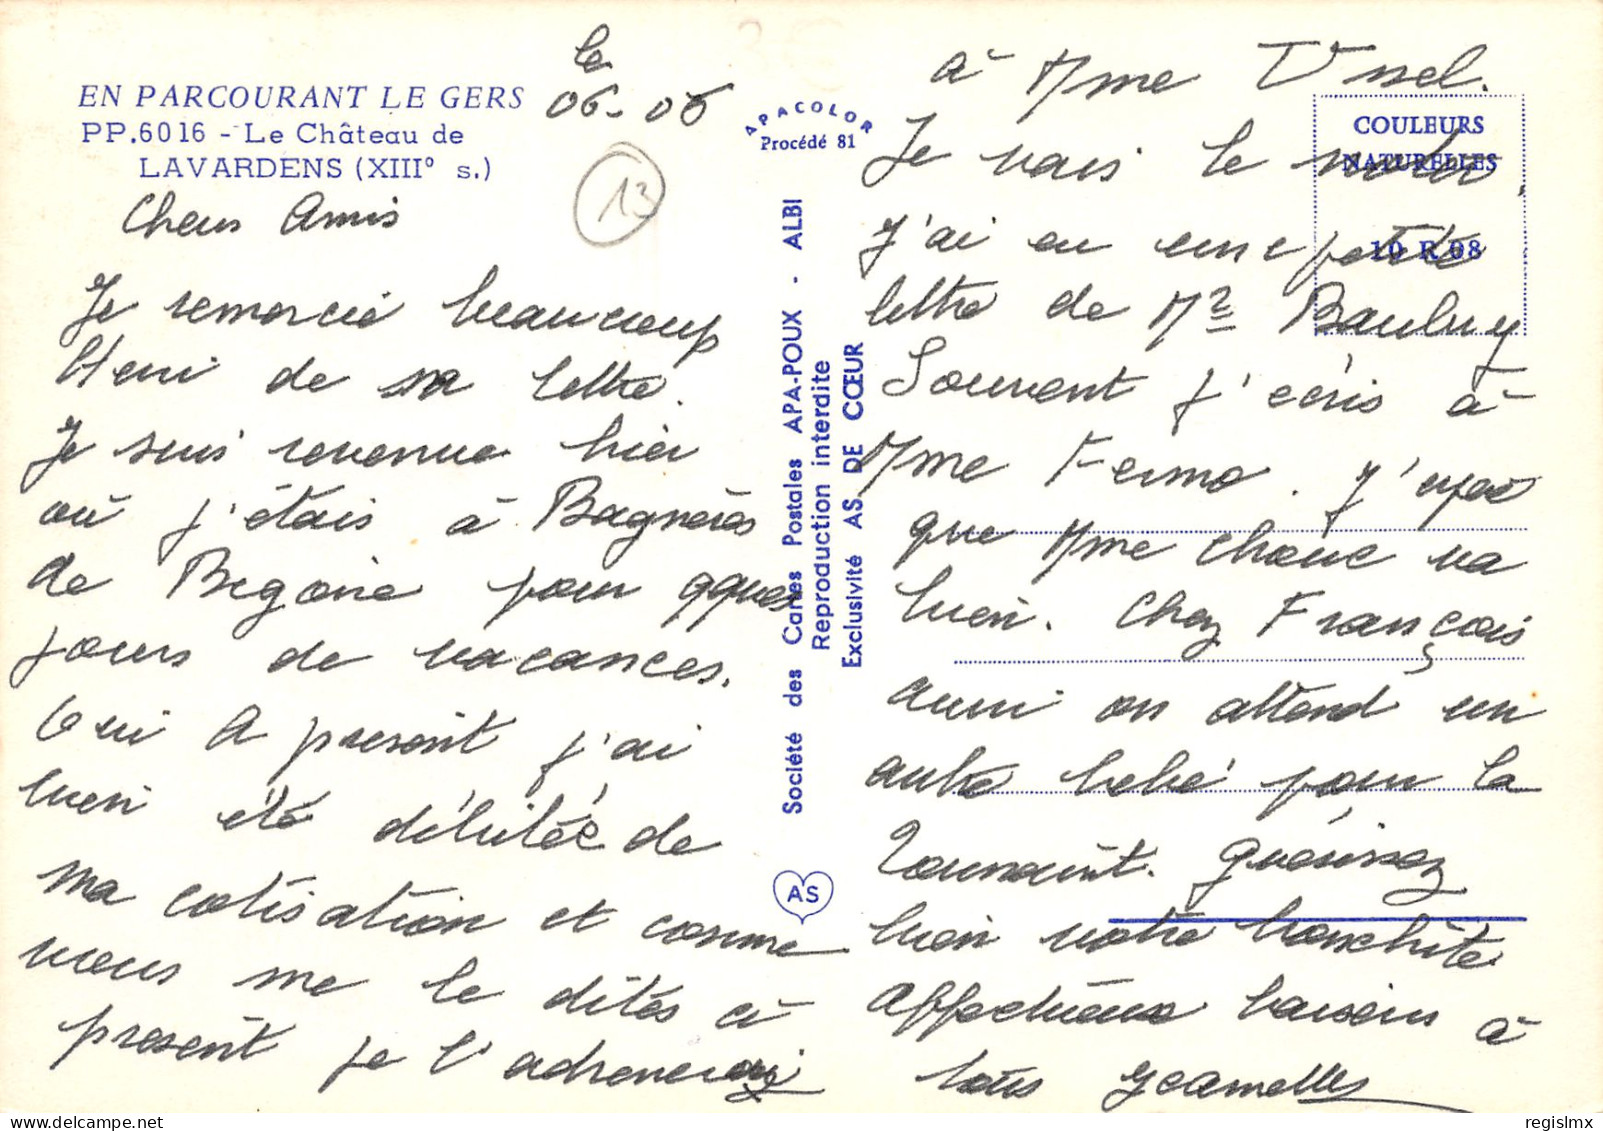 EN PARCOURANT LE GERS
PP.6016 - Le Château de
LAVARDENS (XIII° s.)
le
06-06
13
Chers Amis
Je remercie beaucoup
Henri de sa lettre.
Je suis revenue hier
où j'étais à Bagnères
de Bigorre pour qques
jours de vacances.
Oui A présent j'ai
bien été débitée de
ma cotisation et comme
vous me le dites à
présent je l'adresserai
APACOLOR
Procédé 81
Société des Cartes Postales APA-POUX - ALBI
Reproduction interdite
Exclusivité AS DE CŒUR
AS
COULEURS
NATURELLES
10 R 08
à Mme Ussel.
Je vais le noter.
J'ai eu une petite
lettre de Mr
Souvent j'écris à
Mme J'espère
que Mme va
bien. Chez François
aussi on attend un
autre bébé pour la
Toussaint. Guérissez
bien votre bronchite
Affectueux baisers à
tous
regislmx